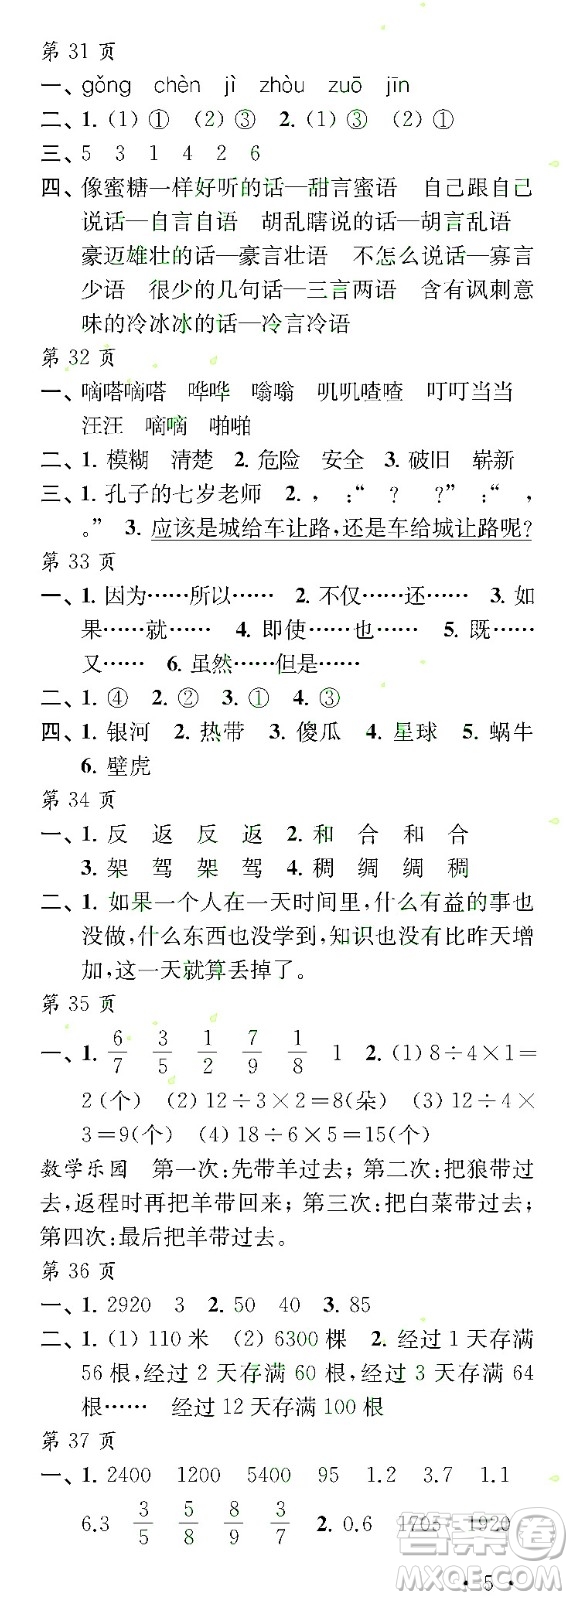 第 31 页
一、gǒng chèn jì zhòu zuō jīn
二、1. (1) ① (2) ③ 2. (1) ③ (2) ①
三、5 3 1 4 2 6
四、像蜜糖一样好听的话—甜言蜜语 自己跟自己
说话—自言自语 胡乱瞎说的话—胡言乱语
豪迈雄壮的话—豪言壮语 不怎么说话—寡言
少语 很少的几句话—三言两语 含有讽刺意
味的冷冰冰的话—冷言冷语
第 32 页
一、嘀嗒嘀嗒 哗哗 嗡嗡 叽叽喳喳 叮叮当当
汪汪 嘀嘀 啪啪
二、1. 模糊 清楚 2. 危险 安全 3. 破旧 崭新
三、1. 孔子的七岁老师 2. ， ：“ ？ ？” ：“ ，
。” 3. 应该是城给车让路，还是车给城让路呢？
第 33 页
一、1. 因为……所以…… 2. 不仅……还…… 3. 如
果……就…… 4. 即使……也…… 5. 既……
又…… 6. 虽然……但是……
二、1. ④ 2. ② 3. ① 4. ③
四、1. 银河 2. 热带 3. 傻瓜 4. 星球 5. 蜗牛
6. 壁虎
第 34 页
一、1. 反 返 反 返 2. 和 合 和 合
3. 架 驾 架 驾 4. 稠 绸 绸 稠
二、1. 如果一个人在一天时间里，什么有益的事也
没做，什么东西也没学到，知识也没有比昨天增
加，这一天就算丢掉了。
第 35 页
一、1. 6/7 3/5 1/2 7/9 1/8 1 2. (1) 8÷4×1=
2(个) (2) 12÷3×2=8(朵) (3) 12÷4×
3=9(个) (4) 18÷6×5=15(个)
数学乐园 第一次：先带羊过去；第二次：把狼带过
去，返程时再把羊带回来；第三次：把白菜带过去；
第四次：最后把羊带过去。
第 36 页
一、1. 2920 3 2. 50 40 3. 85
二、1. (1) 110 米 (2) 6300 棵 2. 经过 1 天存满
56 根，经过 2 天存满 60 根，经过 3 天存满 64
根…… 经过 12 天存满 100 根
第 37 页
一、1. 2400 1200 5400 95 1.2 3.7 1.1
6.3 3/5 5/8 8/9 3/7 2. 0.6 1705 1920
答案圈
MXQE.COM
· 5 ·